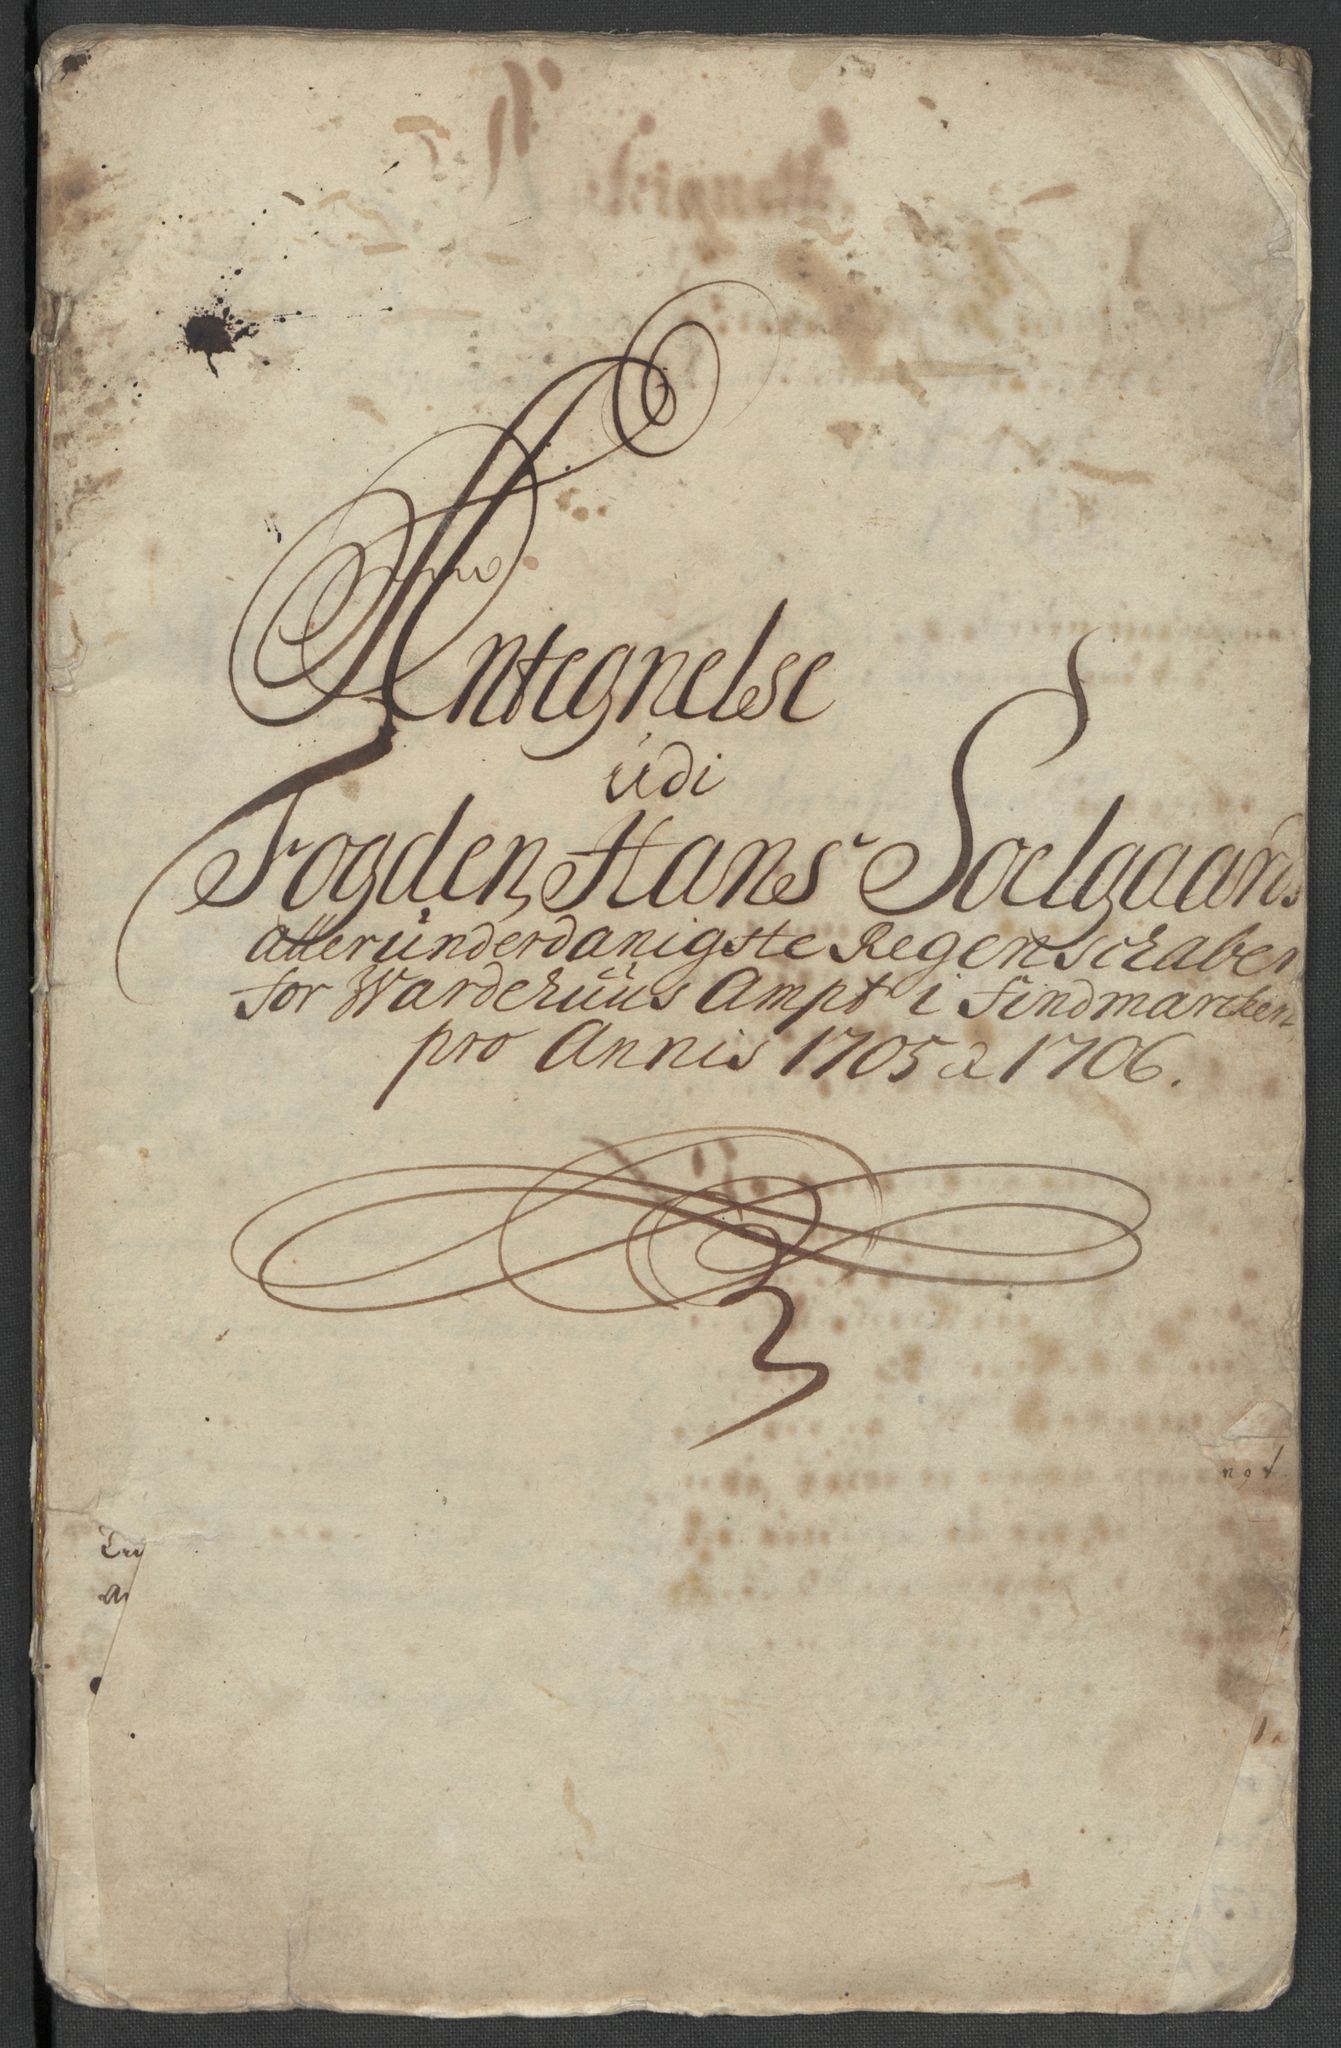 Antegnelse
udi
Fogden Hans Soelgaards
alleründerdanigste Regenschaber
for Wardehüüs Ampt i Findmarcken
pro Annis 1705 & 1706.